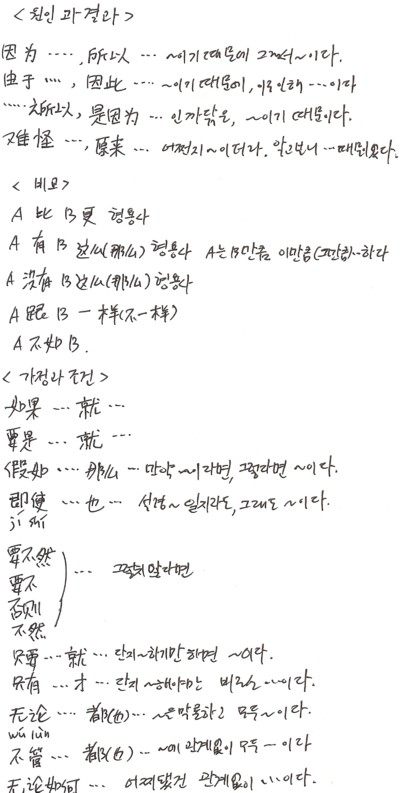 <원인과 결과>
因为 ····, 所以 ··· ~이기 때문에 그래서 ~이다.
由于 ····, 因此 ··· ~이기 때문에, 이로 인해 ···이다
····· 之所以, 是因为 ··· 인 까닭은, ~이기 때문이다.
难怪 ···, 原来 ··· 어쩐지 ~이더라. 알고보니 ···때문이었다.
<비교>
A 比 B 更 형용사
A 有 B 这么(那么) 형용사 A는 B만큼 이만큼(그만큼)···하다
A 没有 B 这么(那么) 형용사
A 跟 B 一样(不一样)
A 不如 B.
<가정과 조건>
如果 ··· 就 ···
要是 ··· 就 ···
假如 ···· 那么 ··· 만약 ~이라면, 그렇다면 ~이다.
即使 ··· 也 ··· 설령 ~일지라도, 그래도 ~이다.
jí shǐ
要不然
要不 ··· 그렇지 않다면
否则
不然
只要 ··· 就 ··· 단지 ~하기만 하면 ~이다.
只有 ··· 才 ··· 단지 ~해야만 비로소 ···이다.
无论 ···· 都(也) ··· ~을 막론하고 모두 ~이다.
wú lùn
不管 ··· 都(也) ··· ~에 관계없이 모두 ···이다
无论如何 ··· 어찌됐건 관계없이 ···이다.